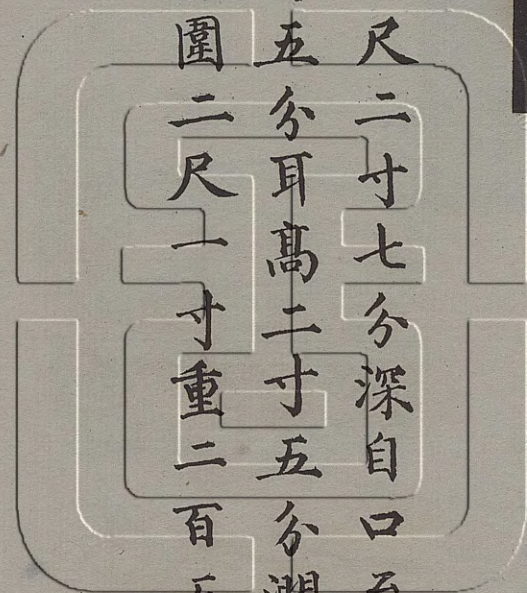 尺二寸七分深自口至
五分耳高二寸五分濶
圍二尺一寸重二百五